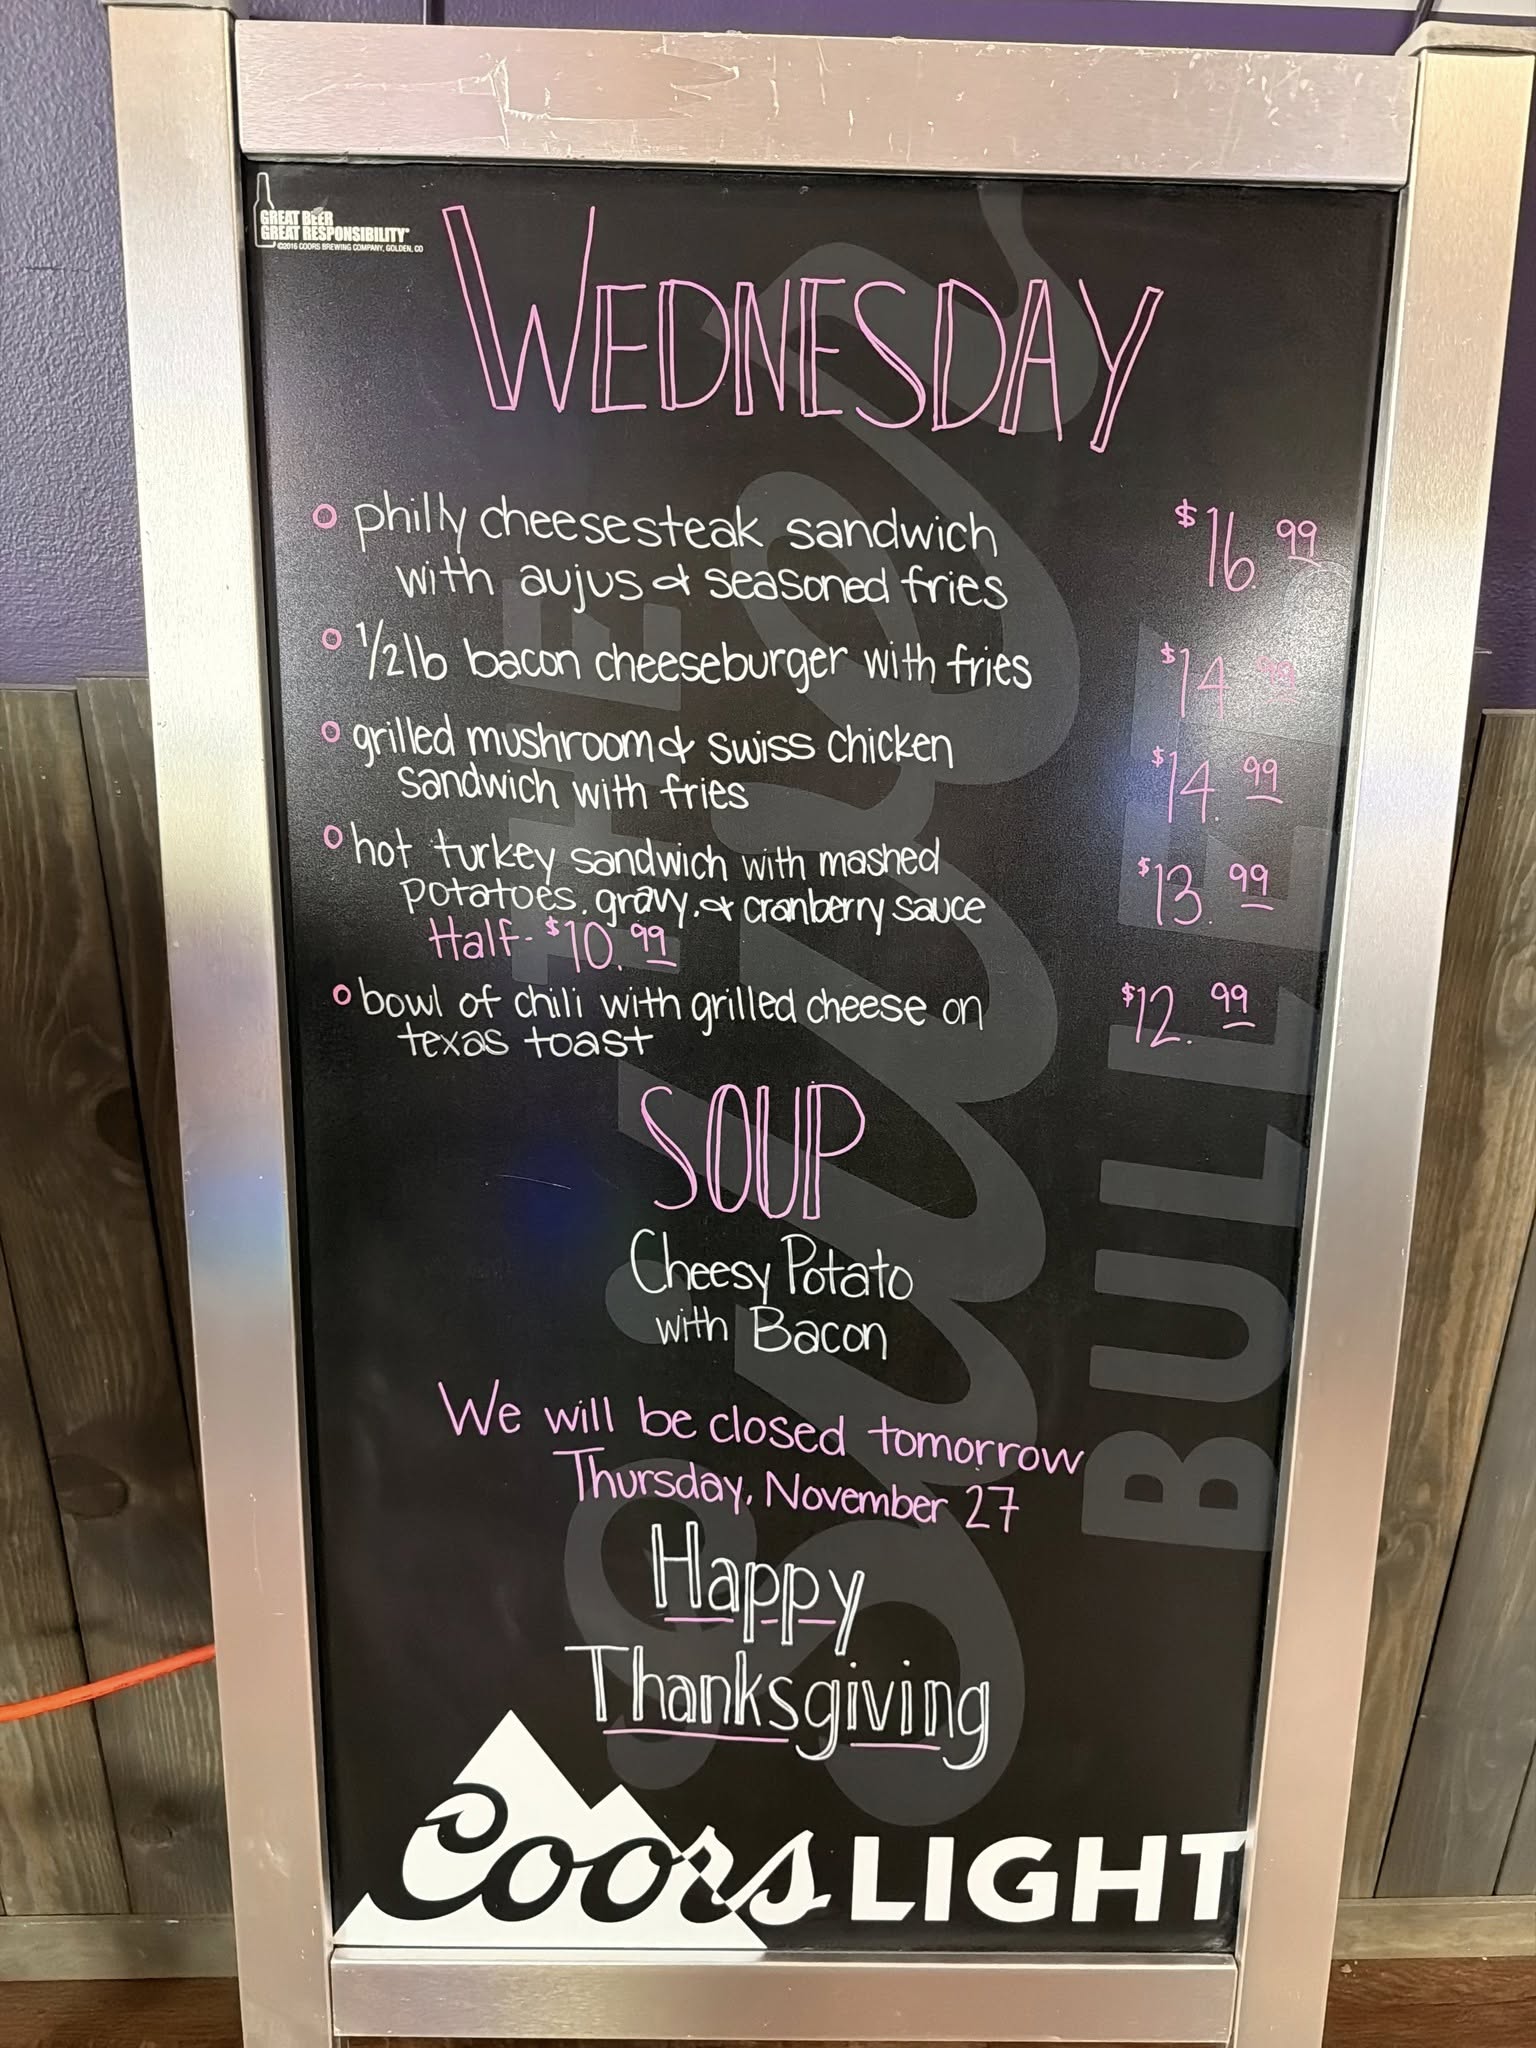 GREAT BEER
GREAT RESPONSIBILITY®
©2016 COORS BREWING COMPANY, GOLDEN, CO
WEDNESDAY
philly cheesesteak sandwich $16.99
with aujus & seasoned fries
1/2lb bacon cheeseburger with fries $14.99
grilled mushroom & swiss chicken $14.99
sandwich with fries
hot turkey sandwich with mashed $13.99
potatoes, gravy, & cranberry sauce
Half- $10.99
bowl of chili with grilled cheese on $12.99
texas toast
SOUP
Cheesy Potato
with Bacon
We will be closed tomorrow
Thursday, November 27
Happy
Thanksgiving
Coors LIGHT
THE
Silver
BULLET